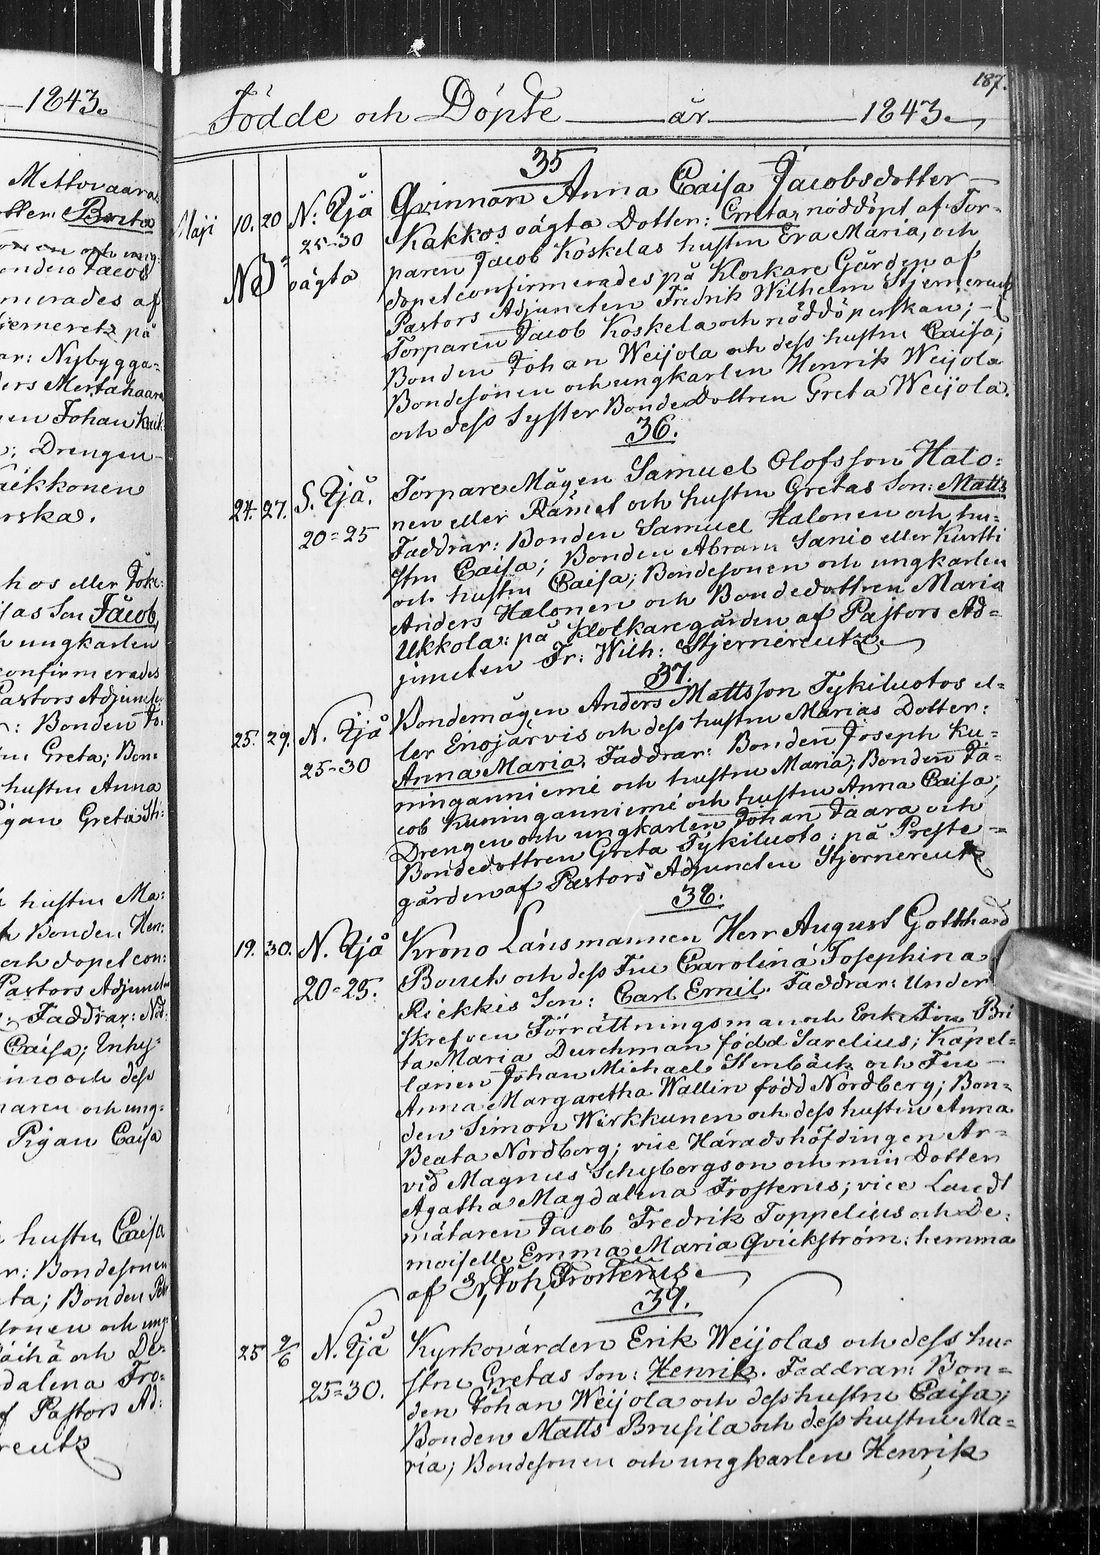 1843.
Mettovaara
Brita
Jacob
merades af
på
ar: Nybygga-
en Johan
Drengen
rska.
hos eller
as Son Jacob,
ungkarlen
confirmerades
Pastors Adjunct
: Bonden
Greta; Bon=
hustru Anna
igan Greta
hustru Ma:
Bonden Hen:
och dopet con:
Pastors Adjunct
Faddrar:
Caisa; Inhy=
och dess
och ung=
Pigan Caisa
hustru Caisa
r: Bondesonen
ta; Bonden
och ung
och De=
dalena Fro=
f Pastors Ad:
reutz
187.
Födde och Döpte år 1843.
35
Maji 10. 20 N: Kjå
25-30
NB: oägta
Qvinnan Anna Caisa Jacobsdotter
Kakkos oägta Dotter: Greta, nöddöpt af Tor-
paren Jacob Koskelas hustru Eva Maria, och
dopet confirmerades på Klockare Gården af
Pastors Adjuncten Fredrik Wilhelm Stjernereutz
Torparen Jacob Koskela och nöddöperskan;
Bonden Johan Weijola och dess hustru Caisa;
Bondesonen och ungkarlen Henrik Weijola
och dess Syster BondeDottren Greta Weijola.
36.
24. 27. S. Kjå.
20=25
Torpare Mågen Samuel Olofsson Halo=
nen eller Rämet och hustru Gretas Son: Matts
Faddrar: Bonden Samuel Halonen och hu=
stru Caisa; Bonden Abram Sanio eller Kurtti
och hustru Caisa; Bondesonen och ungkarlen
Anders Halonen och Bondedottren Maria
Ukkola: på Klockaregården af Pastors Ad=
juncten Fr: Wilh: Stjernereutz.
37.
25. 29. N. Kjå
25-30
Bondemågen Anders Mattsson Tykiluotos el-
ler Enojärvis och dess hustru Marias Dotter:
Anna Maria. Faddrar: Bonden Joseph Ku=
ninganniemi och hustru Maria; Bonden Ja=
cob Kuninganniemi och hustru Anna Caisa;
Drengen och ungkarlen Johan Taara och
Bondedottren Greta Tykiluoto: på Preste=
gården af Pastors Adjuncten Stjernereutz
38.
19. 30. N. Kjå
20=25.
Krono Länsmannen Herr August Gotthard
Bouchs och dess Fru Carolina Josephina
Rickkis Son: Carl Emil. Faddrar: Under
skrefven Förrättningsman och Enke Fru Bri
ta Maria Durchman född Sarelius; Kapel=
lanen Johan Michael Stenbäck och Fru
Anna Margaretha Wallin född Nordberg; Bon=
den Simon Wirkkunen och dess hustru Anna
Beata Nordberg; vice Häradshöfdingen Ar=
vid Magnus Schybergson och min Dotter
Agatha Magdalena Frosterus; vice Landt
mätaren Jacob Fredrik Toppelius och De=
moiselle Emma Maria Qvickström: hemma
af Er. Joh. Frosterus.
39.
25 2/6 N. Kjå
25=30.
Kyrkovärden Erik Weijolas och dess hu=
stru Gretas Son: Henrik. Faddrar: Bon=
den Johan Weijola och dess hustru Caisa;
Bonden Matts Brusila och dess hustru Ma=
ria; Bondesonen och ungkarlen Henrik